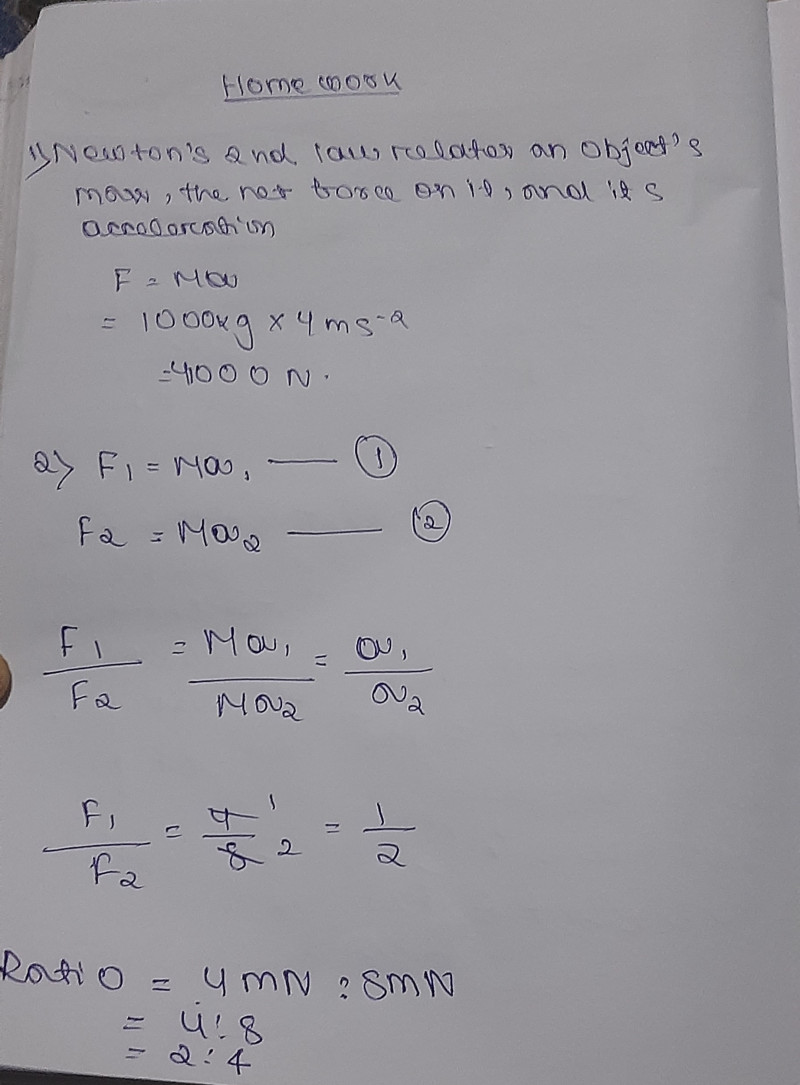 Home work
1) Newton's 2nd law relates an object's
mass, the net force on it, and its
acceleration
F = Ma
= 1000kg × 4 ms-2
=4000 N.
2) F1 = Ma1 —— ①
F2 = Ma2 —— ②
F1/F2 = Ma1/Ma2 = a1/a2
F1/F2 = 4/8 1/2 = 1/2
Ratio = 4mN : 8mN
= 4:8
= 2:4